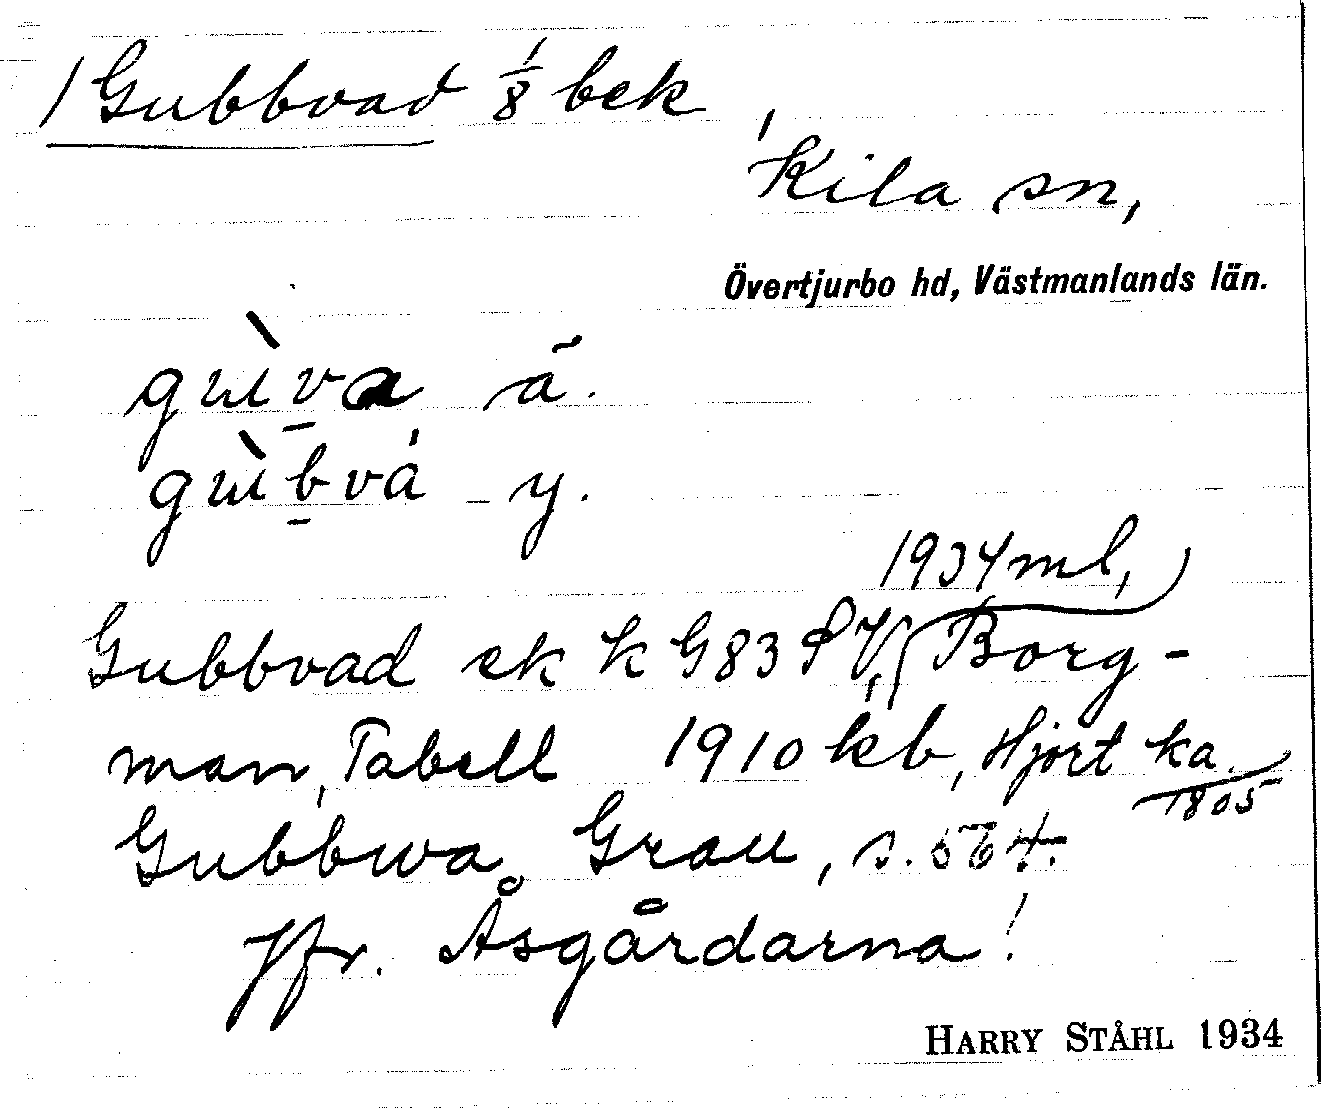 / Gubbvad 1/8 bek,
Kila sn,
Övertjurbo hd, Västmanlands län.
gu̇̀va ä.
gu̇̀bvȧ y.
1934 ml,
Gubbvad ek k G83 PV, Borg-
man, Tabell 1910 kb, Hjort ka.
1805
Gubbwa. Grau, s. 564.
Jfr. Åsgårdarna!
HARRY STÅHL 1934